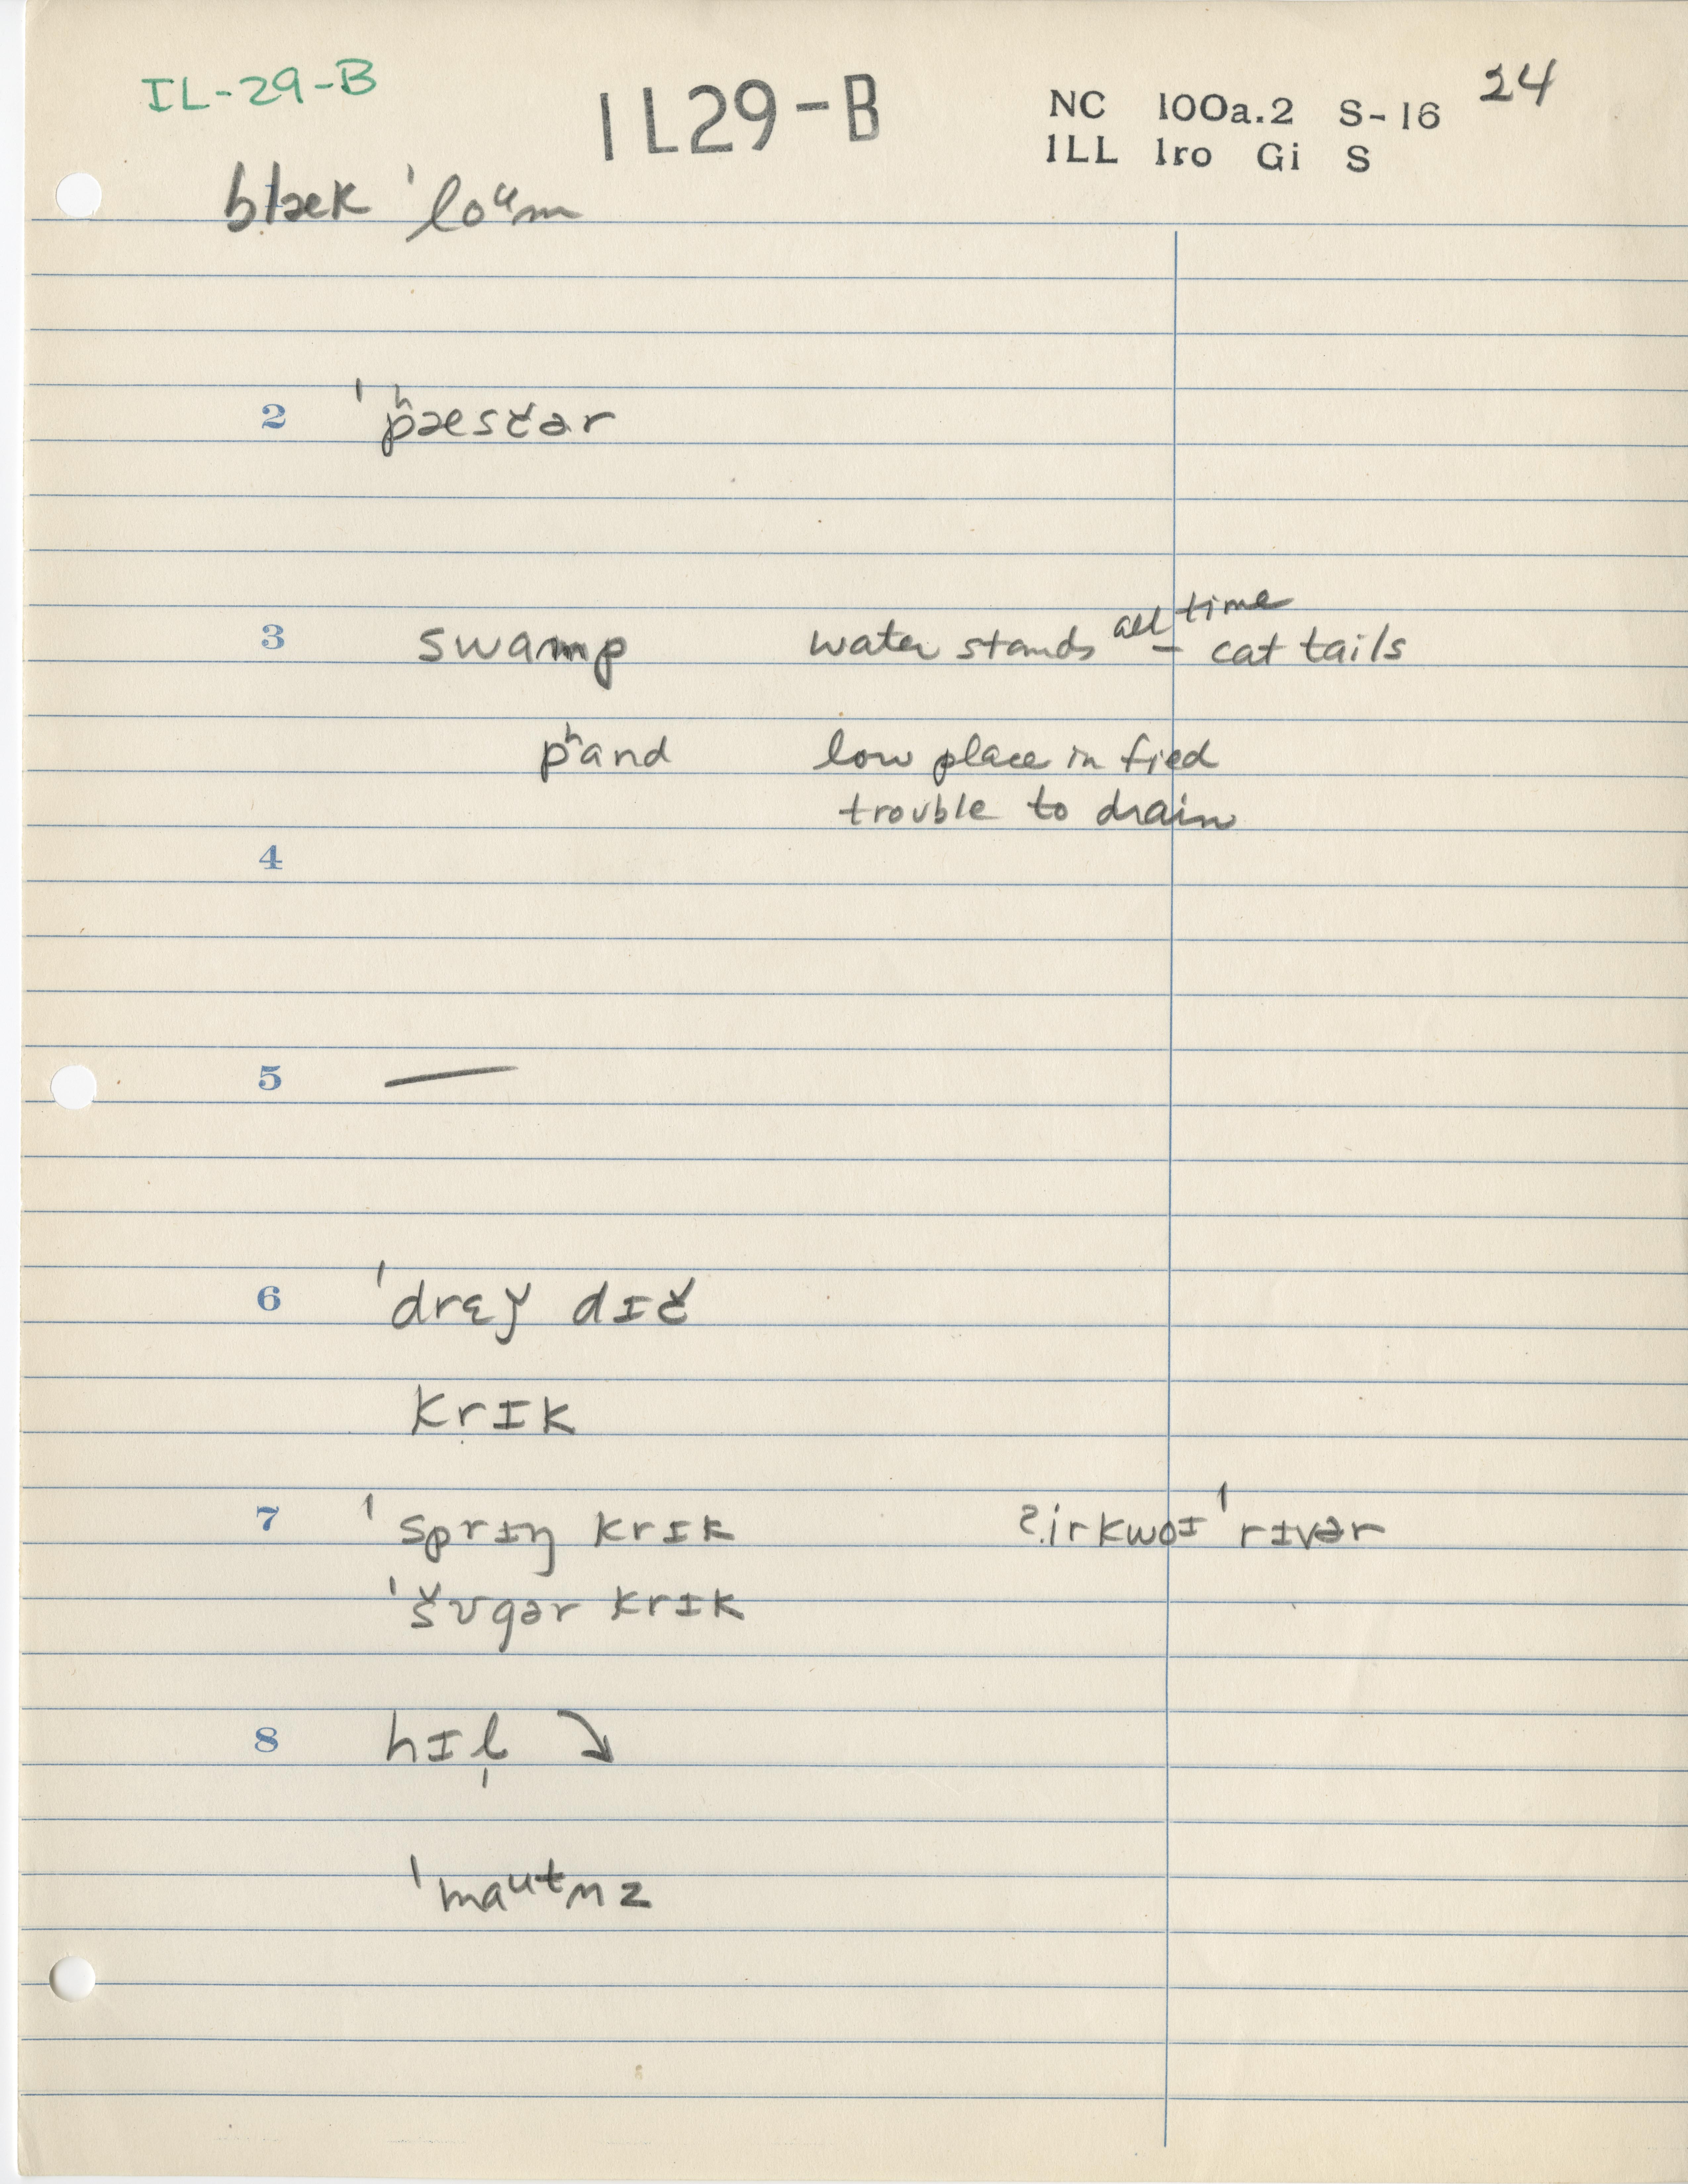 IL-29-B
IL29-B
NC 100a.2 S-16 24
ILL Iro Gi S
1 blæk ˈloᵘm
2 ˈpʰæsčər
3 swamp water stands all time – cat tails
pʰand low place in fied
trouble to drain
4
5 —
6 ˈdrɛǰ dɪč
krɪk
7 ˈsprɪŋ krɪk ʔirkwoɪ ˈrɪvər
ˈšʊgər krɪk
8 hɪl̩ ↘
ˈmaᵘtnz